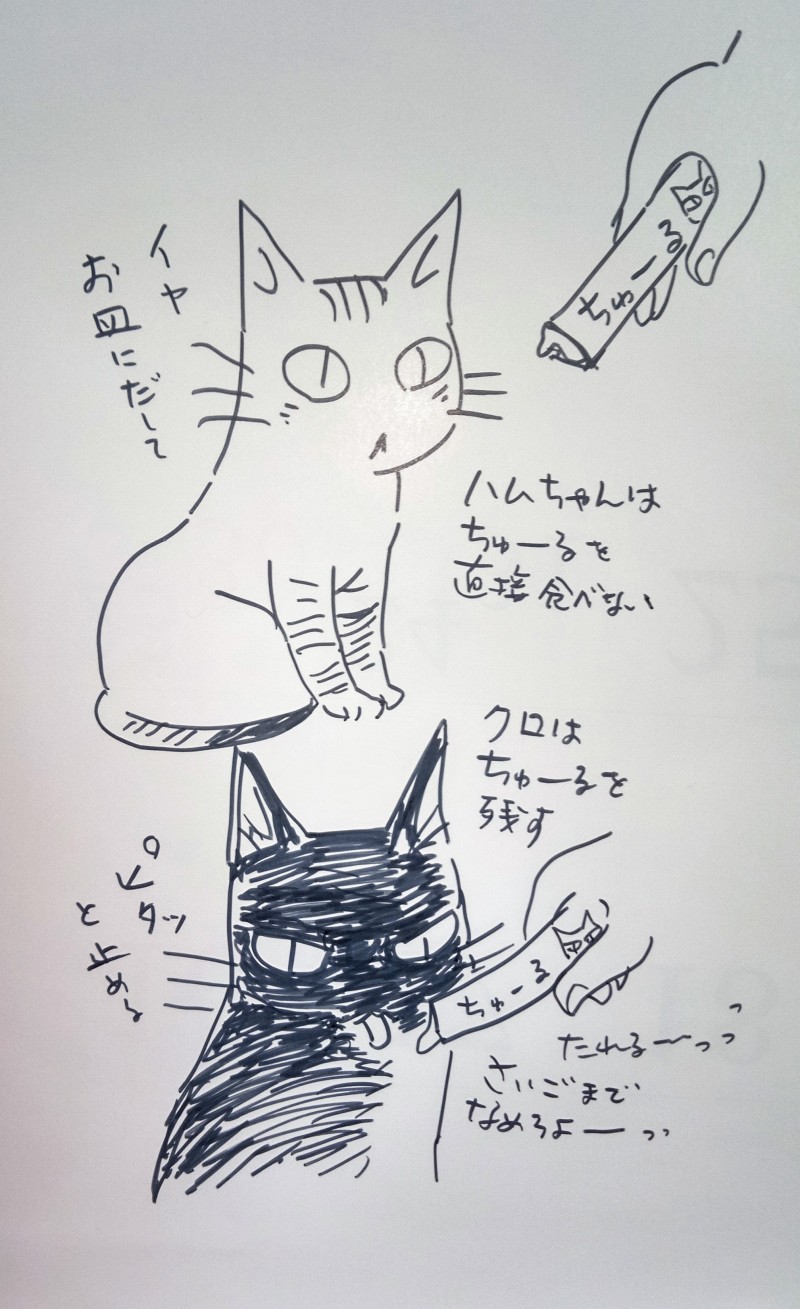 ちゅーる
イヤ
お皿にだして
ハムちゃんは
ちゅーるを
直接食べない
クロは
ちゅーるを
残す
ピタッ
と止める
ちゅーる
たれるーっっっ
さいごまで
なめろよーっっ